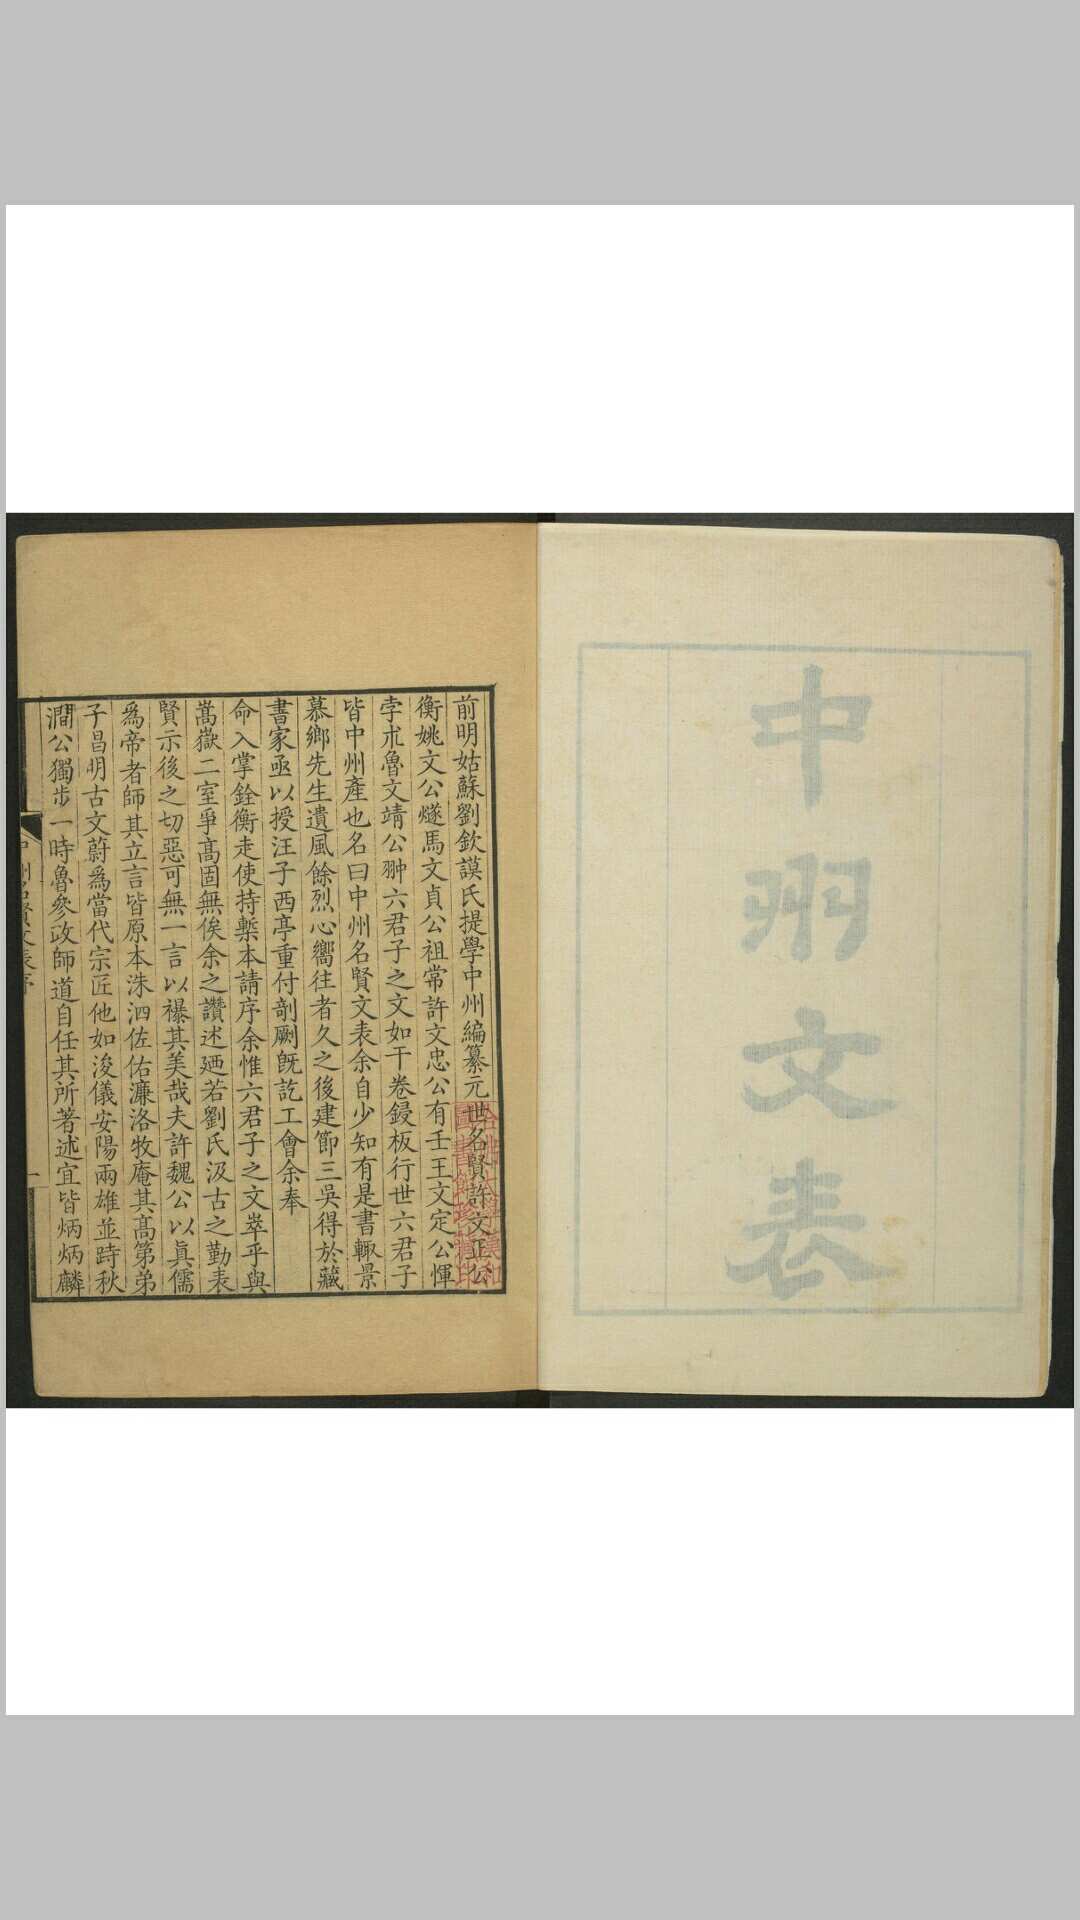 中州文表
前明姑蘇劉欽謨氏提學中州編纂元世名賢許文正公
衡姚文公燧馬文貞公祖常許文忠公有壬王文定公惲
孛朮魯文靖公翀六君子之文如干卷鋟板行世六君子
皆中州產也名曰中州名賢文表余自少知有是書輒景
慕鄉先生遺風餘烈心嚮往者久之後建節三吳得於藏
書家亟以授汪子西亭重付剞劂旣訖工會余奉
命入掌銓衡走使持槧本請序余惟六君子之文崒乎與
嵩嶽二室爭高固無俟余之讚述廼若劉氏汲古之勤表
賢示後之切惡可無一言以襮其美哉夫許魏公以眞儒
爲帝者師其立言皆原本洙泗佐佑濂洛牧庵其高第弟
子昌明古文蔚爲當代宗匠他如浚儀安陽兩雄並跱秋
澗公獨步一時魯參政師道自任其所著述宜皆炳炳麟
中州名賢文表序
一
哈佛大學漢和
圖書館珍藏印